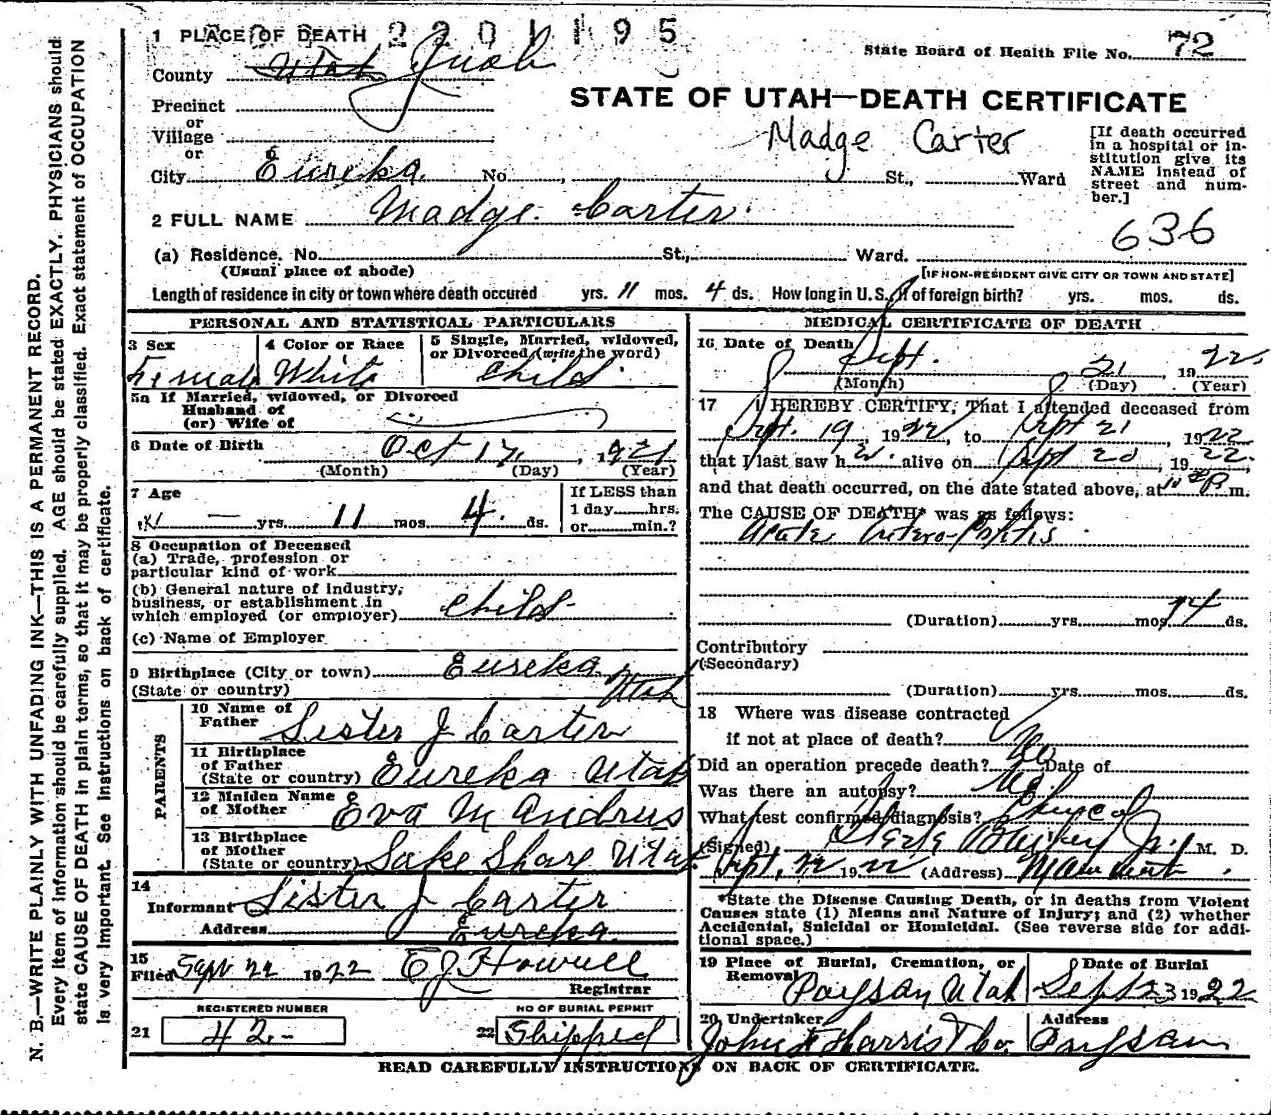 2201195
1 PLACE OF DEATH
State Board of Health File No. 72
County Utah Juab
STATE OF UTAH—DEATH CERTIFICATE
Precinct
or
Village
or
Madge Carter
[If death occurred in a hospital or institution give its NAME instead of street and number.]
City Eureka. No. , St., Ward
2 FULL NAME Madge Carter
636
(a) Residence. No. St., Ward.
(Usual place of abode)
[IF NON-RESIDENT GIVE CITY OR TOWN AND STATE]
Length of residence in city or town where death occured yrs. 11 mos. 4 ds. How long in U.S., if of foreign birth? yrs. mos. ds.
PERSONAL AND STATISTICAL PARTICULARS
3 Sex
Female
4 Color or Race
White
5 Single, Married, widowed, or Divorced (write the word)
Child
5a If Married, widowed, or Divorced
Husband of
(or) Wife of
6 Date of Birth Oct 17, 1921
(Month) (Day) (Year)
7 Age
— yrs. 11 mos. 4. ds.
If LESS than
1 day hrs.
or min.?
8 Occupation of Deceased
(a) Trade, profession or
particular kind of work
(b) General nature of industry,
business, or establishment in
which employed (or employer) Child
(c) Name of Employer
9 Birthplace (City or town) Eureka
(State or country) Utah
PARENTS
10 Name of
Father Lister J Carter
11 Birthplace
of Father
(State or country) Eureka Utah
12 Maiden Name
of Mother Eva M Andrus
13 Birthplace
of Mother
(State or country) Lake Shore Utah
14
Informant Lister J Carter
Address Eureka.
15
Filed Sept 22 1922 E J Howell
Registrar
REGISTERED NUMBER
21 42-
NO OF BURIAL PERMIT
22 Shipped
MEDICAL CERTIFICATE OF DEATH
16 Date of Death
Sept. 21, 1922
(Month) (Day) (Year)
17 I HEREBY CERTIFY, That I attended deceased from
Sept. 19 1922, to Sept 21, 1922
that I last saw h alive on Sept 20, 1922.
and that death occurred, on the date stated above, at m.
The CAUSE OF DEATH* was as follows:
Acute Entero-Colitis
(Duration) yrs. mos. 14 ds.
Contributory
(Secondary)
(Duration) yrs. mos. ds.
18 Where was disease contracted
if not at place of death?
Did an operation precede death? No Date of
Was there an autopsy? No
What test confirmed diagnosis?
(Signed) Bailey Jr. M. D.
Sept, 22 1922 (Address) Mammoth.
*State the Disease Causing Death, or in deaths from Violent Causes state (1) Means and Nature of Injury; and (2) whether Accidental, Suicidal or Homicidal. (See reverse side for additional space.)
19 Place of Burial, Cremation, or Removal
Payson Utah
Date of Burial
Sept 23 1922
20 Undertaker
John Harris & Co.
Address
Payson
READ CAREFULLY INSTRUCTIONS ON BACK OF CERTIFICATE.
N. B.—WRITE PLAINLY WITH UNFADING INK—THIS IS A PERMANENT RECORD.
Every item of information should be carefully supplied. AGE should be stated EXACTLY. PHYSICIANS should
state CAUSE OF DEATH in plain terms, so that it may be properly classified. Exact statement of OCCUPATION
is very important. See Instructions on back of certificate.